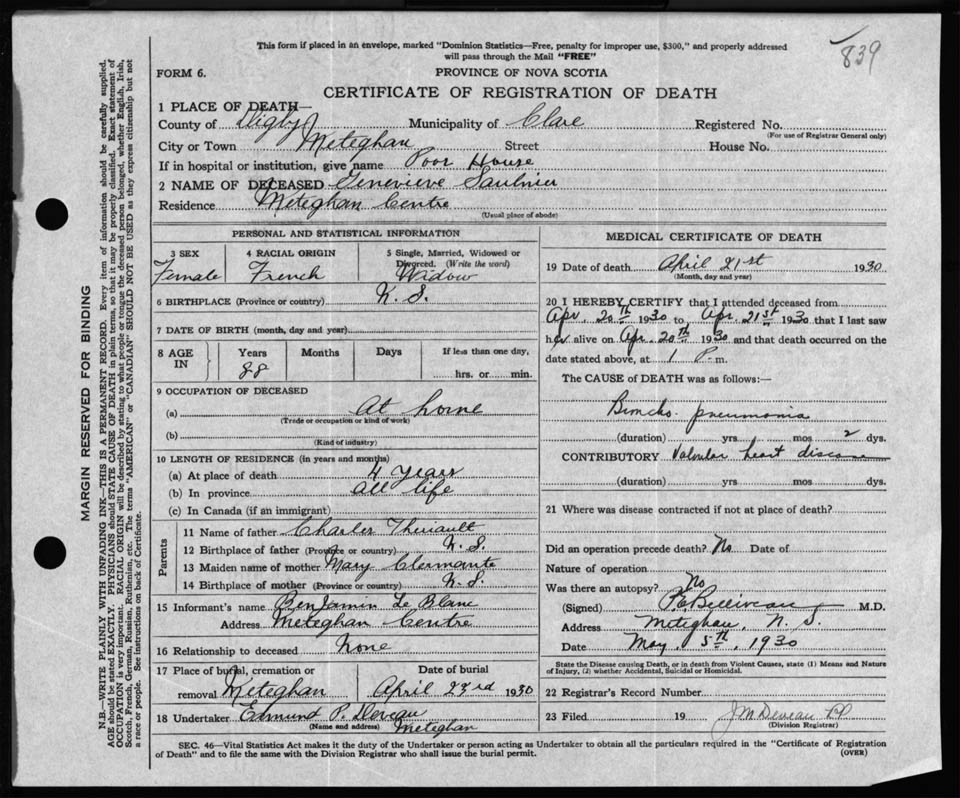 839
This form if placed in an envelope, marked "Dominion Statistics—Free, penalty for improper use, $300," and properly addressed
will pass through the Mail "FREE"
FORM 6. PROVINCE OF NOVA SCOTIA
CERTIFICATE OF REGISTRATION OF DEATH
1 PLACE OF DEATH—
County of Digby Municipality of Clare Registered No.
(For use of Registrar General only)
City or Town Meteghan Street House No.
If in hospital or institution, give name Poor House
2 NAME OF DECEASED Genevieve Saulnier
Residence Meteghan Centre
(Usual place of abode)
PERSONAL AND STATISTICAL INFORMATION
3 SEX 4 RACIAL ORIGIN 5 Single, Married, Widowed or
Divorced. (Write the word)
Female French Widow
6 BIRTHPLACE (Province or country) N. S.
7 DATE OF BIRTH (month, day and year)
8 AGE IN Years Months Days If less than one day,
88 hrs. or min.
9 OCCUPATION OF DECEASED
(a) At home
(Trade or occupation or kind of work)
(b)
(Kind of industry)
10 LENGTH OF RESIDENCE (in years and months)
(a) At place of death 4 Years
(b) In province all life
(c) In Canada (if an immigrant)
Parents
11 Name of father Charles Theriault
12 Birthplace of father (Province or country) N. S.
13 Maiden name of mother Mary
14 Birthplace of mother (Province or country) N. S.
15 Informant's name Benjamin Le Blanc
Address Meteghan Centre
16 Relationship to deceased None
17 Place of burial, cremation or Date of burial
removal Meteghan April 23rd 1930
18 Undertaker Edmund P.
(Name and address) Meteghan
MEDICAL CERTIFICATE OF DEATH
19 Date of death April 21st 1930
(Month, day and year)
20 I HEREBY CERTIFY that I attended deceased from
Apr. 20th 1930 to Apr. 21st 1930 that I last saw
her alive on Apr. 20th 1930 and that death occurred on the
date stated above, at 1 P. m.
The CAUSE of DEATH was as follows:—
Broncho. pneumonia
(duration) yrs. mos. 2 dys.
CONTRIBUTORY Valvular heart disease
(duration) yrs. mos. dys.
21 Where was disease contracted if not at place of death?
Did an operation precede death? No Date of
Nature of operation
Was there an autopsy? No
(Signed) P.E. Belliveau M.D.
Address Meteghan, N. S.
Date May 5th, 1930
State the Disease causing Death, or in death from Violent Causes, state (1) Means and Nature
of Injury, (2) whether Accidental, Suicidal or Homicidal.
22 Registrar's Record Number
23 Filed 19 J M Deveau
(Division Registrar)
SEC. 46—Vital Statistics Act makes it the duty of the Undertaker or person acting as Undertaker to obtain all the particulars required in the "Certificate of Registration
of Death" and to file the same with the Division Registrar who shall issue the burial permit. (OVER)
MARGIN RESERVED FOR BINDING
N.B.—WRITE PLAINLY WITH UNFADING INK—THIS IS A PERMANENT RECORD. Every item of information should be carefully supplied.
AGE should be stated EXACTLY. PHYSICIANS should STATE CAUSE OF DEATH in plain terms, so that it may be properly classified. Exact statement of
OCCUPATION is very important. RACIAL ORIGIN will be described by stating to what people or tongue the deceased person belonged, whether English, Irish,
Scotch, French, German, Russian, Ruthenian, etc. The terms "AMERICAN" or "CANADIAN" SHOULD NOT BE USED as they express citizenship but not
a race or people. See instructions on back of Certificate.